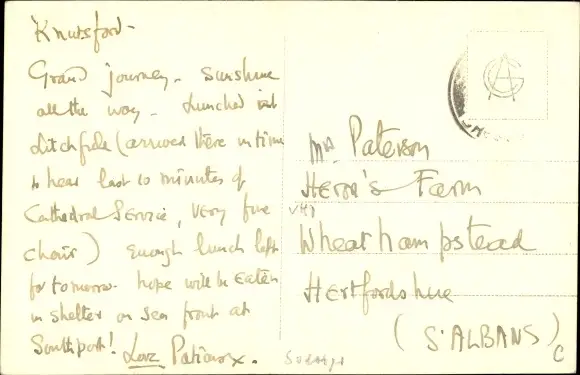 Knutsford-
Grand journey - sunshine
all the way - Lunched in
Litchfield (arrived there in time
to hear last 10 minutes of
Cathedral Service, very fine
choir) Enough lunch left
for tomorrow - hope will be eaten
in shelter on sea front at
Southport! Love Patience x.
Mrs Paterson
Heron's Farm
Wheathampstead
Hertfordshire
(S. ALBANS)
C